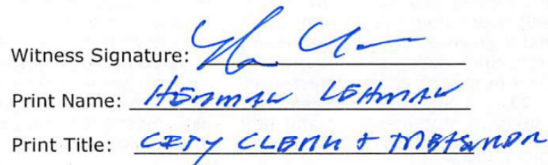 Witness Signature:
Print Name: HERMAN LEHMAN
Print Title: CITY CLERK + TREASURER